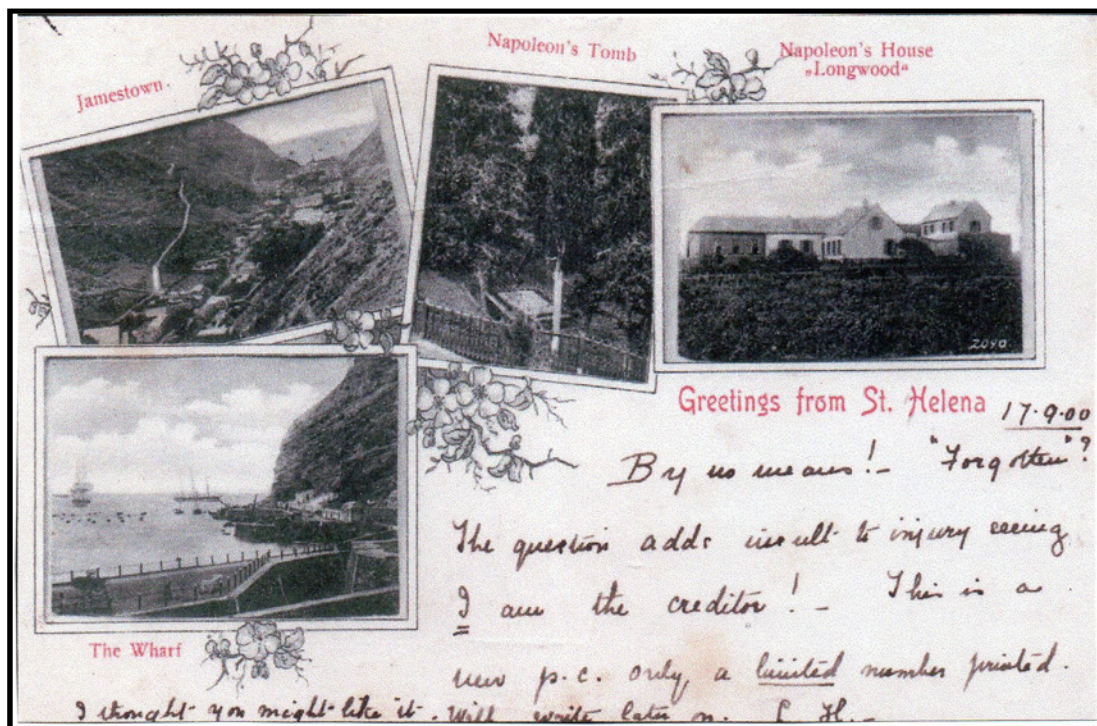 Jamestown.
Napoleon's Tomb
Napoleon's House
„Longwood“
2040
The Wharf
Greetings from St. Helena
17·9·00
By no means! - "Forgotten"?
The question adds insult to injury seeing
I am the creditor! - This is a
new p.c. only a limited number printed.
I thought you might like it. Will write later on. L H. -